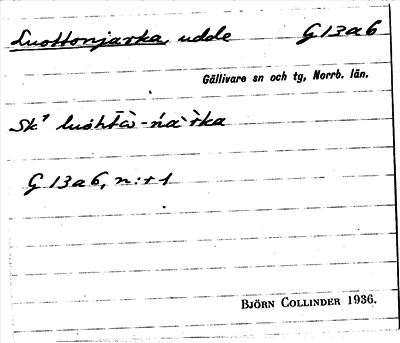 Luottonjarka, udde G13a6
Gällivare sn och tg, Norrb. län.
Sk¹ luòhtà̄-ńàrka
G 13 a 6, n:r 1
BJÖRN COLLINDER 1936.